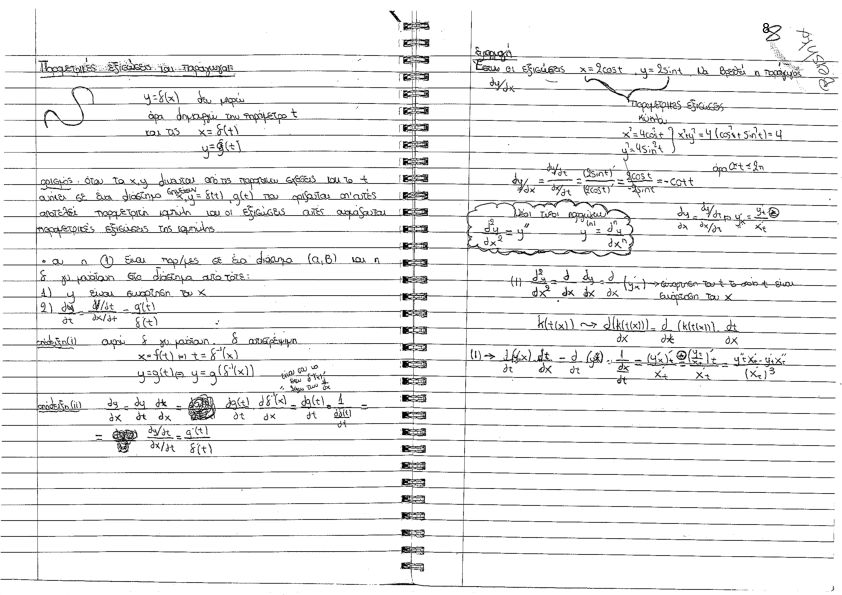 Παραμετρικές εξισώσεις και παράγωγοι
y=δ(x) δεν μπορώ
άρα δημιουργώ την παράμετρο t
και τις x=δ(t)
y=g(t)
ορισμός: όταν τα x,y δίνονται από τις παραπάνω σχέσεις και το t
ανήκει σε ένα διάστημα x,y = δ(t), g(t) που ορίζεται απ'αυτές
αποτελεί παραμετρική καμπύλη και οι εξισώσεις αυτές ονομάζονται
παραμετρικές εξισώσεις της καμπύλης.
• αν η ① είναι παρ/μες σε ένα διάστημα (α,β) και η
δ γν. μονότονη στο διάστημα αυτό τότε:
1) y είναι συνάρτηση του x
2) dy/dt = (dy/dt)/(dx/dt) = g'(t)/δ'(t)
απόδειξη(i) αφού δ γν μονότονη, δ αντιστρέψιμη
x=f(t) ⇔ t=δ⁻¹(x)
y=g(t) ⇔ y=g(δ⁻¹(x))
απόδειξη(ii) dy/dx = dy/dt dt/dx = dg(t)/dt dδ⁻¹(x)/dx = dg(t)/dt · 1/(dδ(t)/dt) =
= (dy/dt)/(dx/dt) = g'(t)/δ'(t)
8
Εφαρμογή
Έστω οι εξισώσεις x=2cost , y=2sint Να βρεθεί η παράγωγος
dy/dx
παραμετρικές εξισώσεις
κύκλου
x²=4cos²t
y²=4sin²t } x²+y²=4(cos²t+sin²t)=4
άρα 0≤t≤2π
dy/dx = (dy/dt)/(dx/dt) = (2sint)'/(2cost)' = 2cost/-2sint = -cott
Νέοι τύποι παραγώγων
d²y/dx² = y'' y⁽ⁿ⁾ = dⁿy/dxⁿ
dy/dx = (dy/dt)/(dx/dt) ⇔ y'ₓ = y'ₜ/x'ₜ ②
(1) d²y/dx² = d/dx dy/dx = d/dx (y'ₓ) → συνάρτηση του t το οποίο t είναι
συνάρτηση του x
k(t(x)) ⇝ d(k(t(x)))/dx = d/dt (k(t(x))) · dt/dx
(1) → d(y'x)/dt · dt/dx = d/dt (y'x) · 1/(dx/dt) = (y'x)'t/x't ② = (y't/x't)'t/x't = (y''t x't - y't x''t)/(x't)³